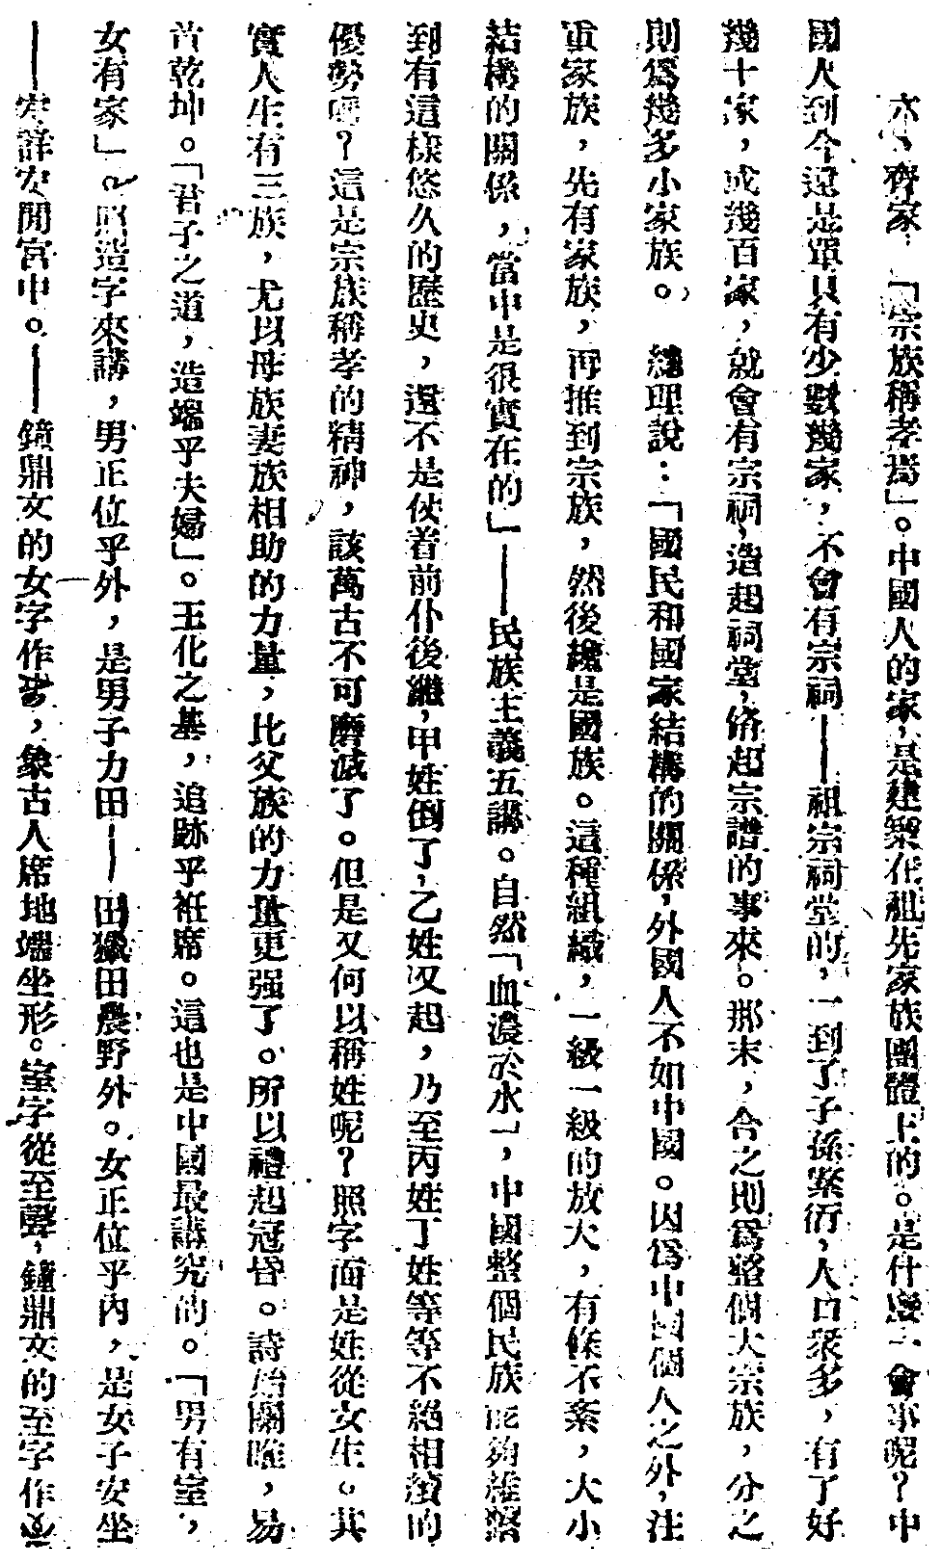 六、齊家，「宗族稱孝焉」。中國人的家，是建築在祖先家族團體上的。是什麼一會事呢？中
國人到今還是單只有少數幾家，不會有宗祠——祖宗祠堂的，一到了子孫繁衍，人口衆多，有了好
幾十家，或幾百家，就會有宗祠，造起祠堂，修起宗譜的事來。那末，合之則爲整個大宗族，分之
則爲幾多小家族。　總理說：「國民和國家結構的關係，外國人不如中國。因爲中國個人之外，注
重家族，先有家族，再推到宗族，然後纔是國族。這種組織，一級一級的放大，有條不紊，大小
結構的關係，當中是很實在的」——民族主義五講。自然「血濃於水」，中國整個民族能夠維繫
到有這樣悠久的歷史，還不是仗着前仆後繼，甲姓倒了，乙姓又起，乃至丙姓丁姓等等不絕相續的
優勢嗎？這是宗族稱孝的精神，該萬古不可磨滅了。但是又何以稱姓呢？照字面是姓從女生。其
實人生有三族，尤以母族妻族相助的力量，比父族的力量更强了。所以禮起冠昏。詩始關雎，易
首乾坤。「君子之道，造端乎夫婦」。王化之基，追跡乎衽席。這也是中國最講究的。「男有室，
女有家」。照造字來講，男正位乎外，是男子力田——田獵田農野外。女正位乎內，是女子安坐
——安詳安閒宮中。——鐘鼎文的女字作，象古人席地端坐形。室字從至聲，鐘鼎文的至字作